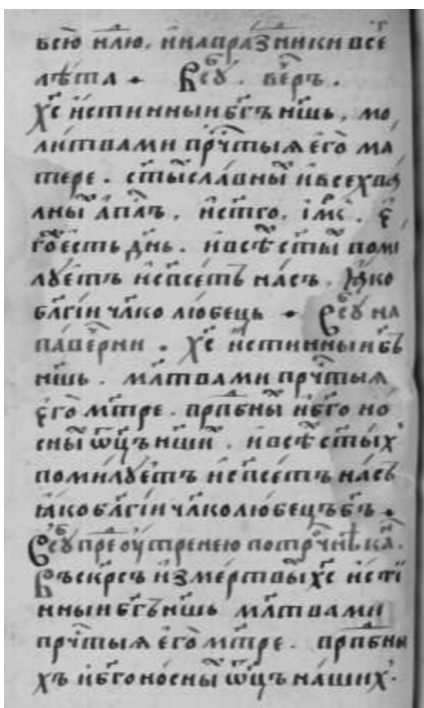 всю нл҃ю. и҆ на пра́зники все
лѣта • В̾ сꙋ́б҃. ве́ръ.
Хс҃ и҆́стинныи бг҃ъ нш҃ь, мо
ли́твами прч҃тыѧ є҆го̀ ма
тере. ст҃ы́ сла́вны и҆ всехва́
лны а҆пл҃ъ, и҆ ст҃го, і҆мк҃. є҆
го́ есть дн҃ь. и҆ всѣ ст҃ы поми
лꙋетъ и҆ сп҃сетъ на́съ. ꙗ҆́ко
бл҃гіи чл҃колюбець • В̾ сꙋ́б҃ на
паве́рни. Хс҃ и҆́стинныи б҃ъ
нш҃ь. мл҃твами прч҃тыѧ
є҆го̀ мт҃ре. прпⷣбны и҆ бг҃оно
сны ѿц҃ъ нши҃. и҆ всѣ ст҃ыхъ
поми́лꙋетъ и҆ сп҃сетъ на́съ
ꙗ҆́ко бл҃гіи чл҃колюбецъ б҃ъ •
В̾ сꙋ́б҃ пре оу҆́тренею по трч҃нѣ ка҃.
Въскр҃съ и҆з ме́ртвы хс҃ и҆сті
нныи бг҃ъ нш҃ь мл҃твами
прч҃тыѧ є҆го̀ мт҃ре. прпⷣбны
хъ и҆ бг҃оносны ѿц҃ъ на́шихъ.